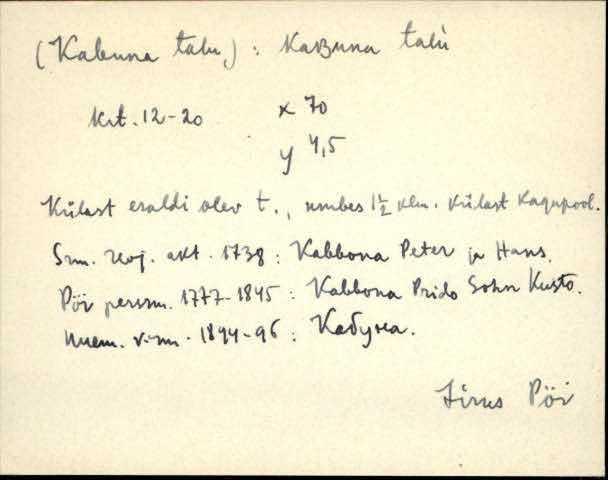 (Kabuna talu,) : KaBuna talù
Krt. 12-20 x 70
y 4,5
Külast eraldi olev t., umbes 1½ klm. külast Kagupool.
Srm. revj. akt. 1738 : Kabbona Peter ja Hans.
Pöi persrn. 1777-1845 : Kabbona Prido Sohn Kusto.
1894-96 : Кабуна.
Pöi